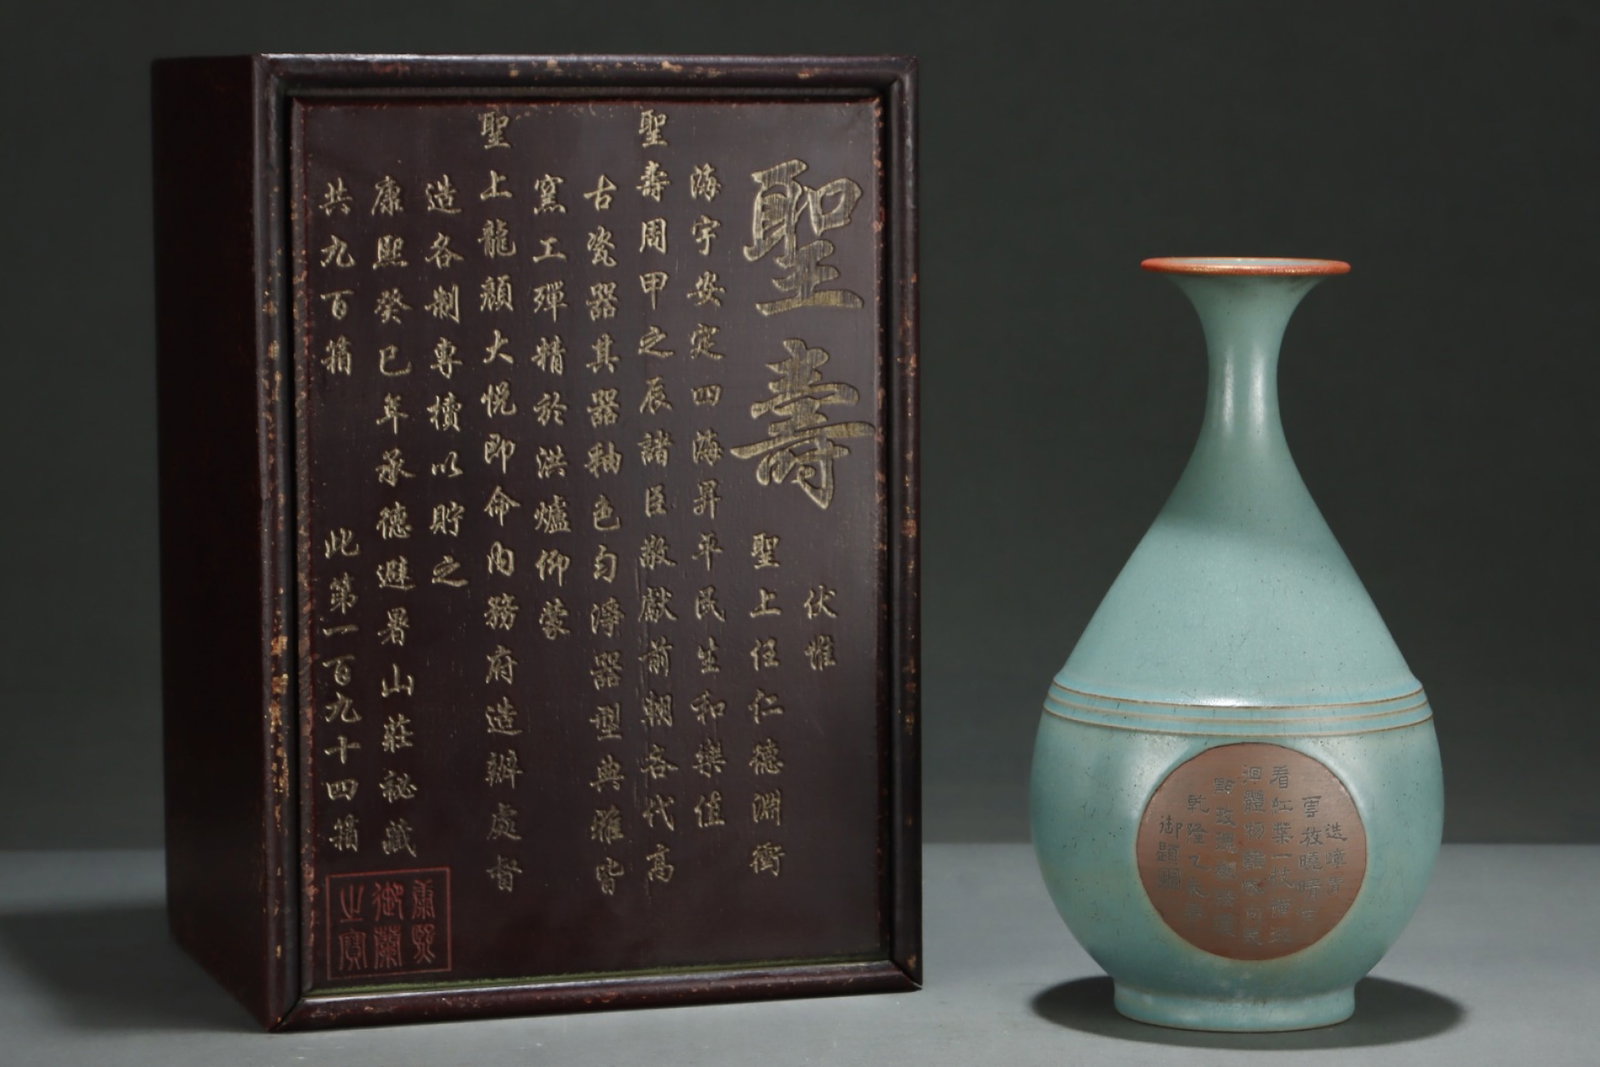 聖壽
伏惟
聖上任仁德淵衝
海宇安定四海昇平民生和樂值
聖壽周甲之辰諸臣敬獻前朝各代高
古瓷器其器釉色勻淨器型典雅皆
窯工殫精於洪爐仰蒙
聖上龍顏大悅即命內務府造辦處督
造各制專櫝以貯之
康熙癸巳年承德避暑山莊秘藏
共九百箱 此第一百九十四箱
康熙
御蘭
之寶
雲披曉晴
看紅葉一
乾隆乙未
御題